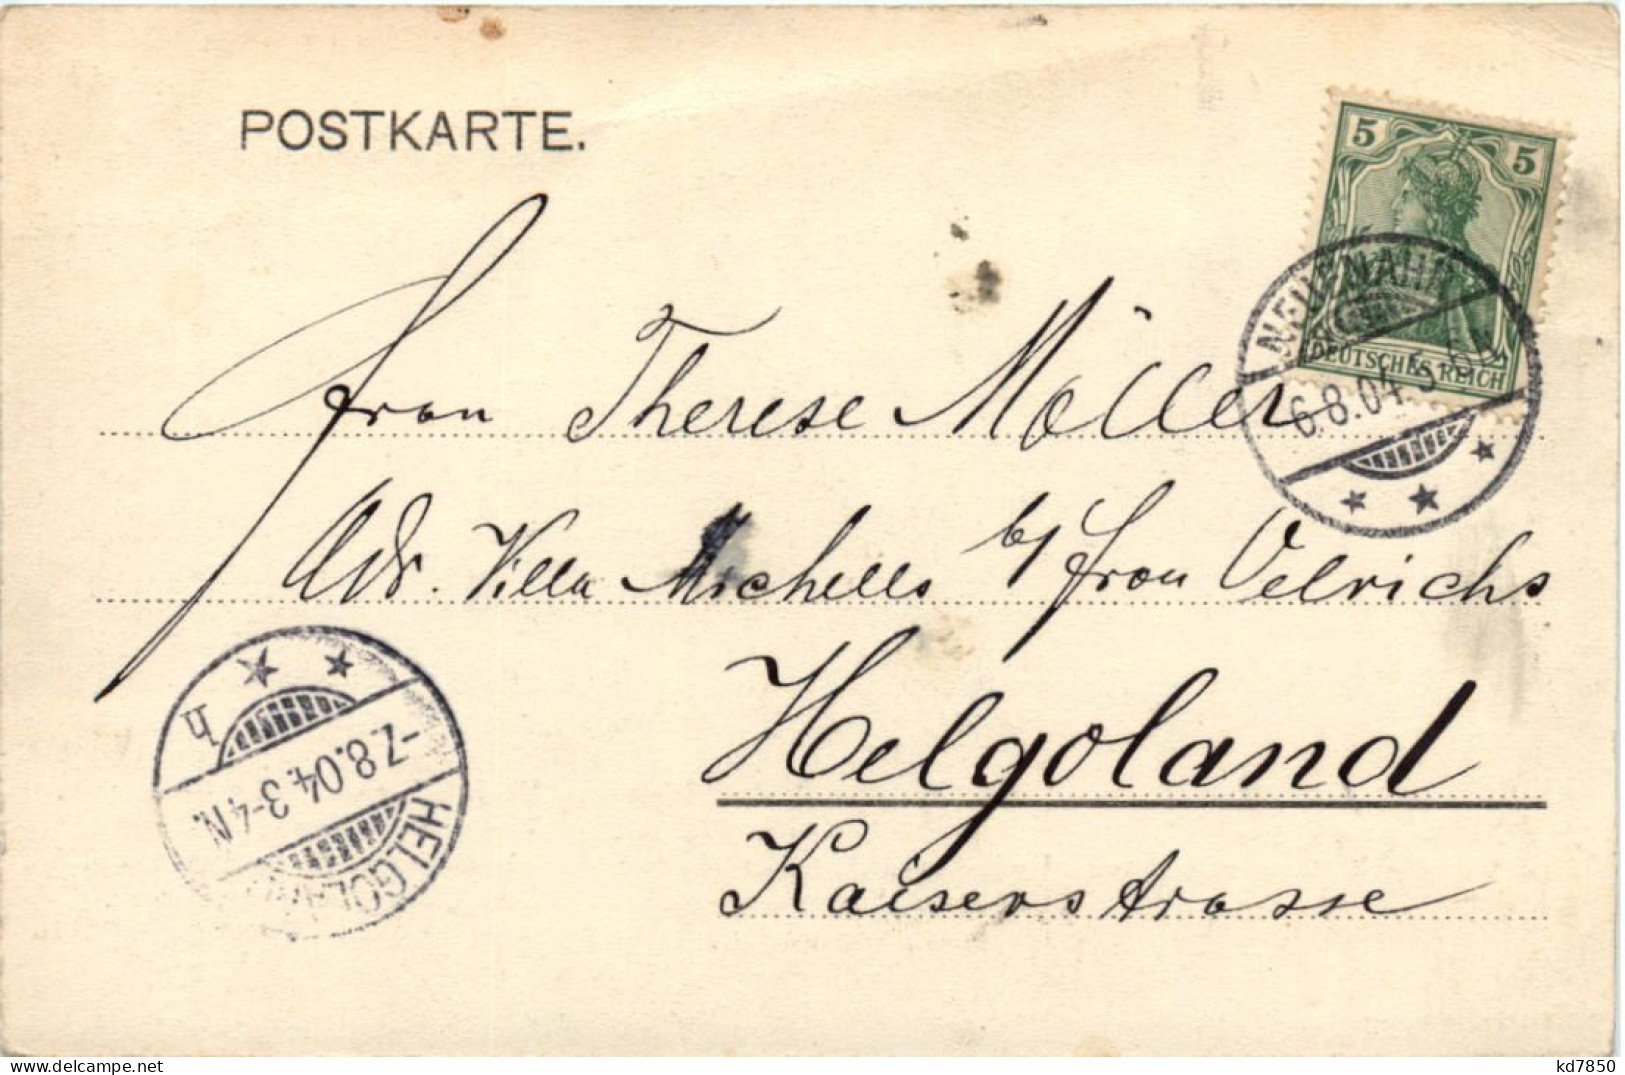 POSTKARTE.
5 5
DEUTSCHES REICH
NEUENAHR
6.8.04.5-6N.
Frau Therese Möller
Adr. Villa Michells b/ Frau Oelrichs
Helgoland
Kaiserstrasse
h
-7.8.04.3-4N.
HELGOLAND
delcampe.net
kd7850